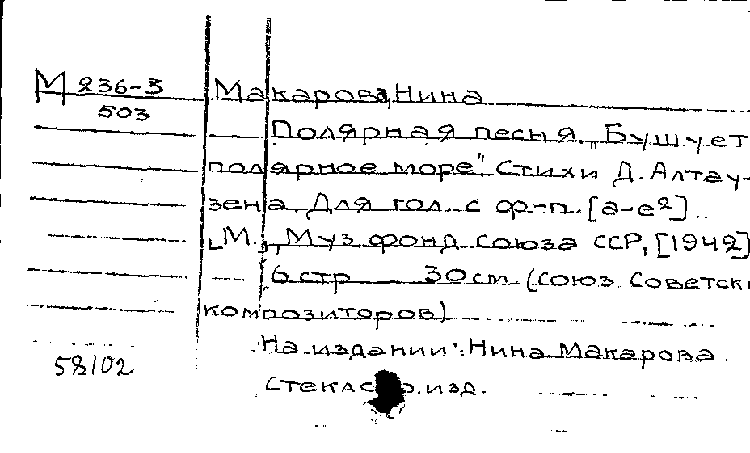 М 236-3
503
Макарова, Нина
Полярная песня. „Бушует
полярное море" Стихи Д. Алтау-
зена. Для гол. с ф-п. [a-e²]
М., Муз фонд союза ССР, [1942]
6 стр 30 см. (Союз Советски
композиторов)
На издании: Нина Макарова
Стекло изд.
58102